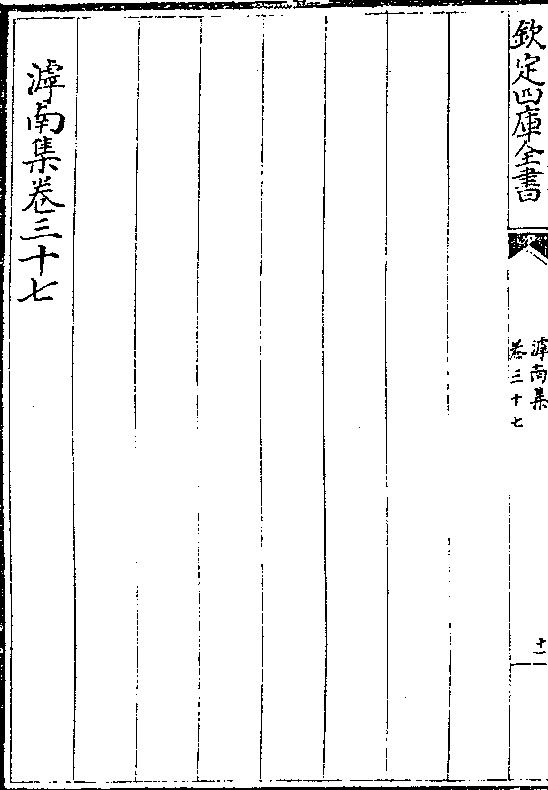 欽定四庫全書
滹南集
卷三十七
十一
滹南集卷三十七